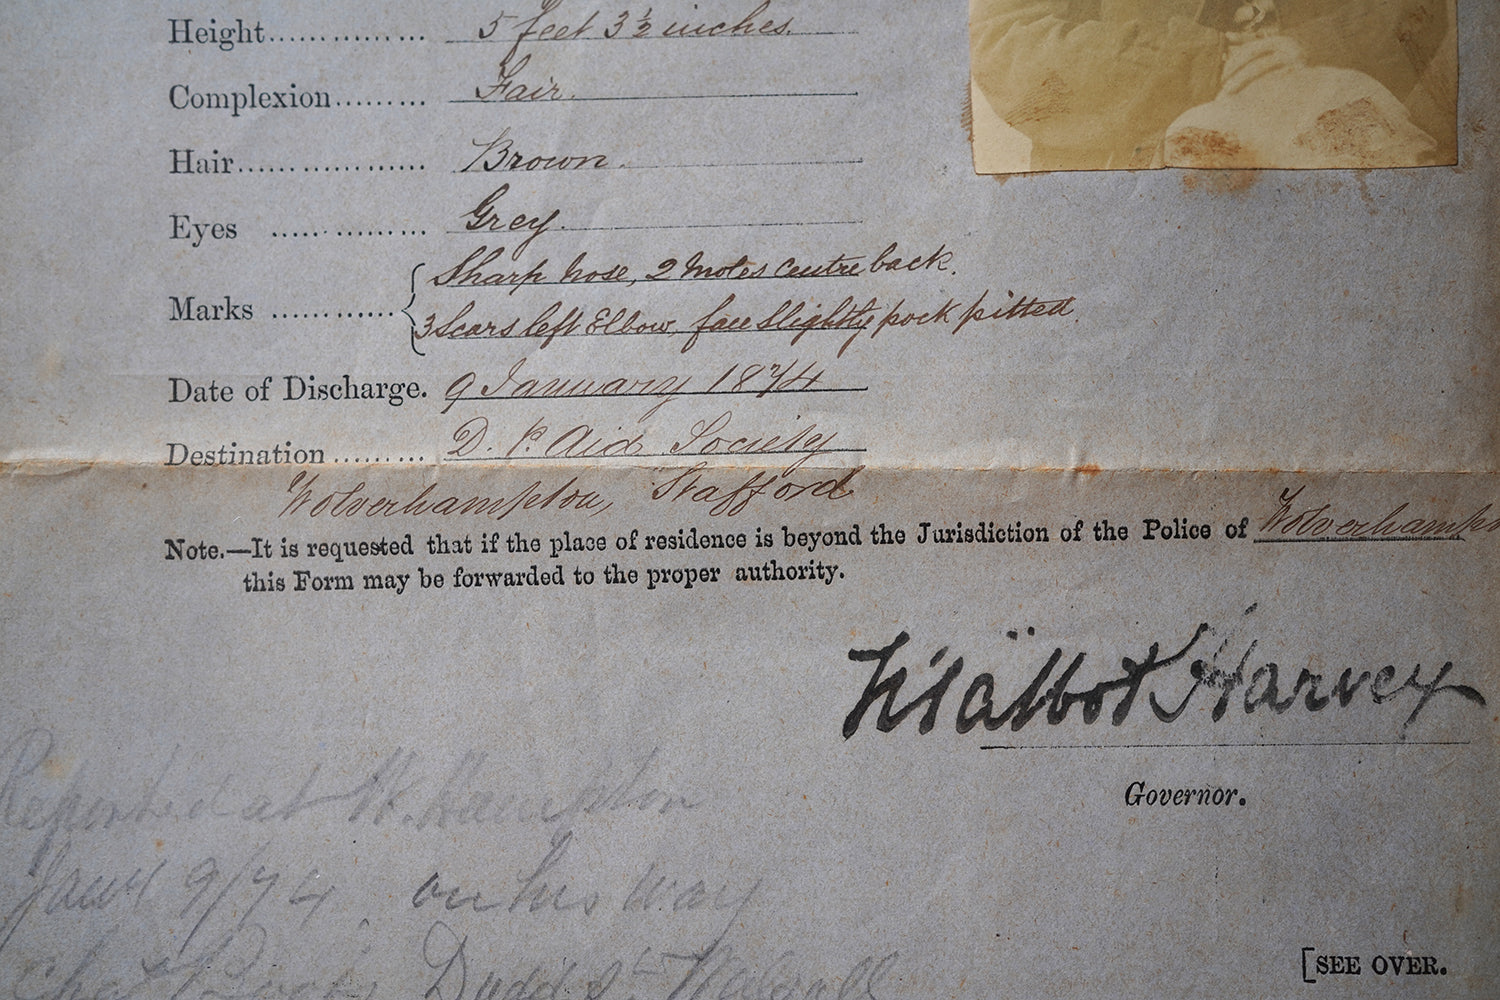 Height............... 5 feet 3½ inches.
Complexion......... Fair.
Hair.................. Brown.
Eyes ............... Grey.
Marks ............ { Sharp nose, 2 moles centre back.
3 Scars left Elbow, face slightly pock pitted.
Date of Discharge. 9 January 1874
Destination ......... D. P. Aid Society
Wolverhampton, Stafford
Note.—It is requested that if the place of residence is beyond the Jurisdiction of the Police of Wolverhampto
this Form may be forwarded to the proper authority.
Talbot Harvey
Governor.
Reported at W. Hampton
Jany 9/74 on his way
Dudd St Walsall
[SEE OVER.